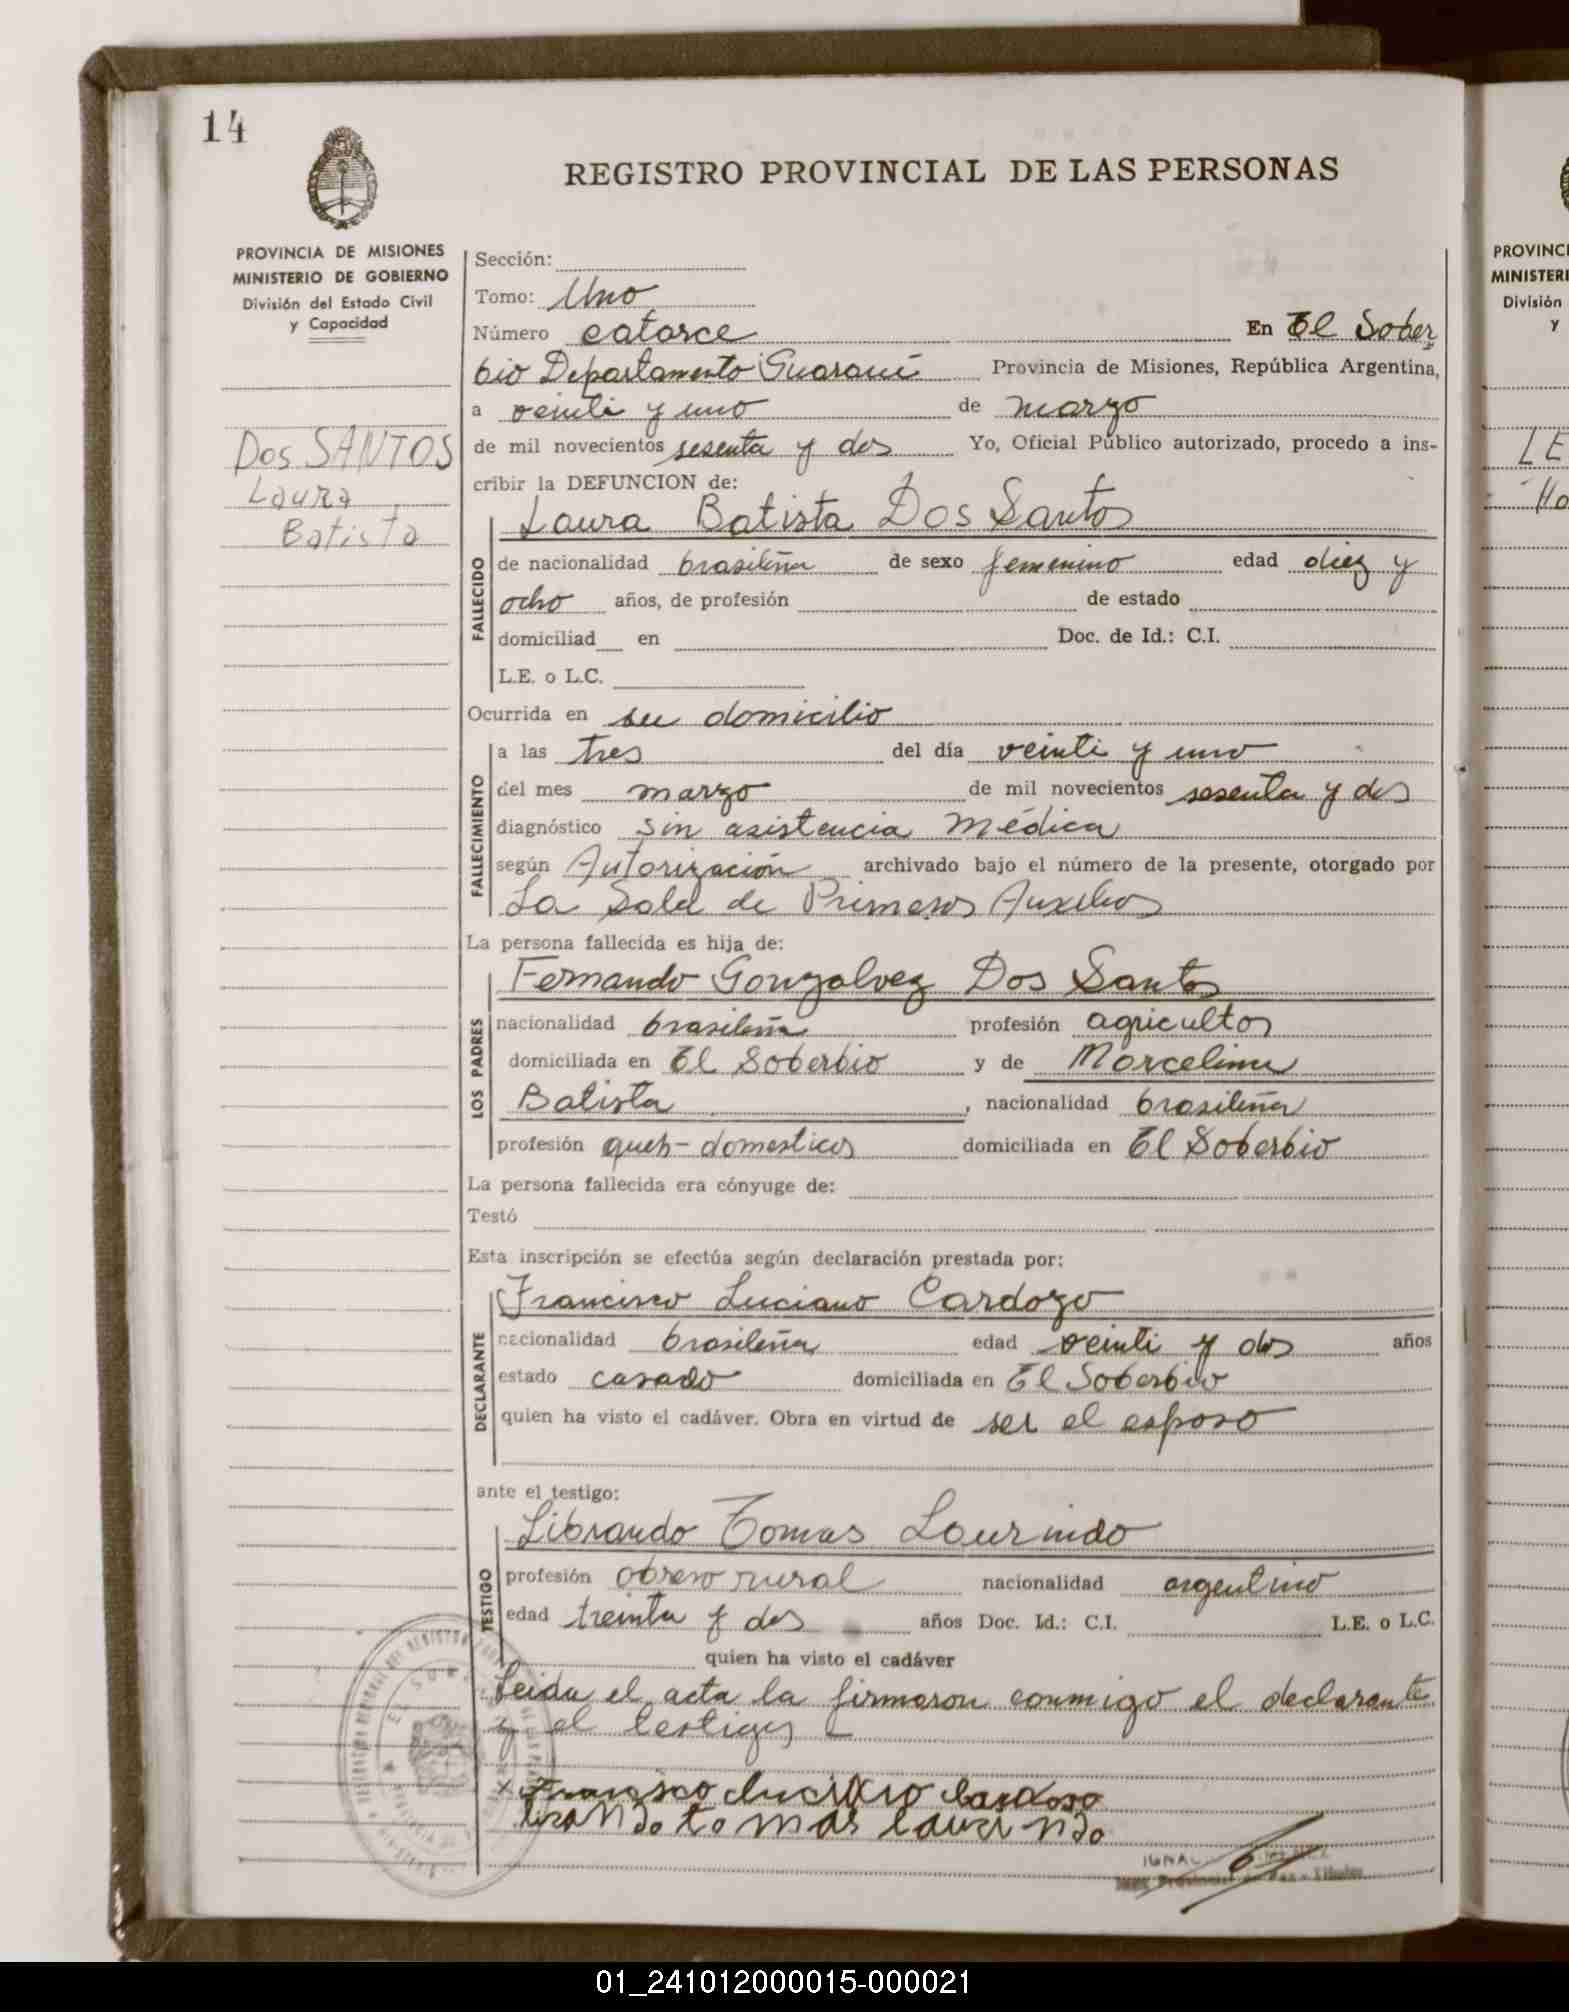 14
REGISTRO PROVINCIAL DE LAS PERSONAS
PROVINCIA DE MISIONES
MINISTERIO DE GOBIERNO
División del Estado Civil
y Capacidad
Dos SANTOS
Laura
Batista
Sección:
Tomo: Uno
Número catorce En El Sober
bio Departamento Guaraní Provincia de Misiones, República Argentina,
a veinti y uno de marzo
de mil novecientos sesenta y dos Yo, Oficial Público autorizado, procedo a ins-
cribir la DEFUNCION de:
Laura Batista Dos Santos
FALLECIDO
de nacionalidad brasileña de sexo femenino edad diez y
ocho años, de profesión de estado
domiciliad en Doc. de Id.: C.I.
L.E. o L.C.
Ocurrida en su domicilio
FALLECIMIENTO
a las tres del día veinti y uno
del mes marzo de mil novecientos sesenta y dos
diagnóstico sin asistencia médica
según Autorización archivado bajo el número de la presente, otorgado por
La Sala de Primeros Auxilios
La persona fallecida es hija de:
LOS PADRES
Fernando Gonzalvez Dos Santos
nacionalidad brasileña profesión agricultor
domiciliada en El Soberbio y de Marcelina
Batista, nacionalidad brasileña
profesión queh-domesticos domiciliada en El Soberbio
La persona fallecida era cónyuge de:
Testó
Esta inscripción se efectúa según declaración prestada por:
DECLARANTE
Francisco Luciano Cardozo
nacionalidad brasileña edad veinti y dos años
estado casado domiciliada en El Soberbio
quien ha visto el cadáver. Obra en virtud de ser el esposo
ante el testigo:
TESTIGO
Librando Tomas Laurindo
profesión obrero rural nacionalidad argentino
edad treinta y dos años Doc. Id.: C.I. L.E. o L.C.
quien ha visto el cadáver
Leida el acta la firmaron conmigo el declarante
y el testigo
x Francisco Cardoso
tomas laurindo
PROVINCI
MINISTERI
División
y
LE
Ho
01_241012000015-000021